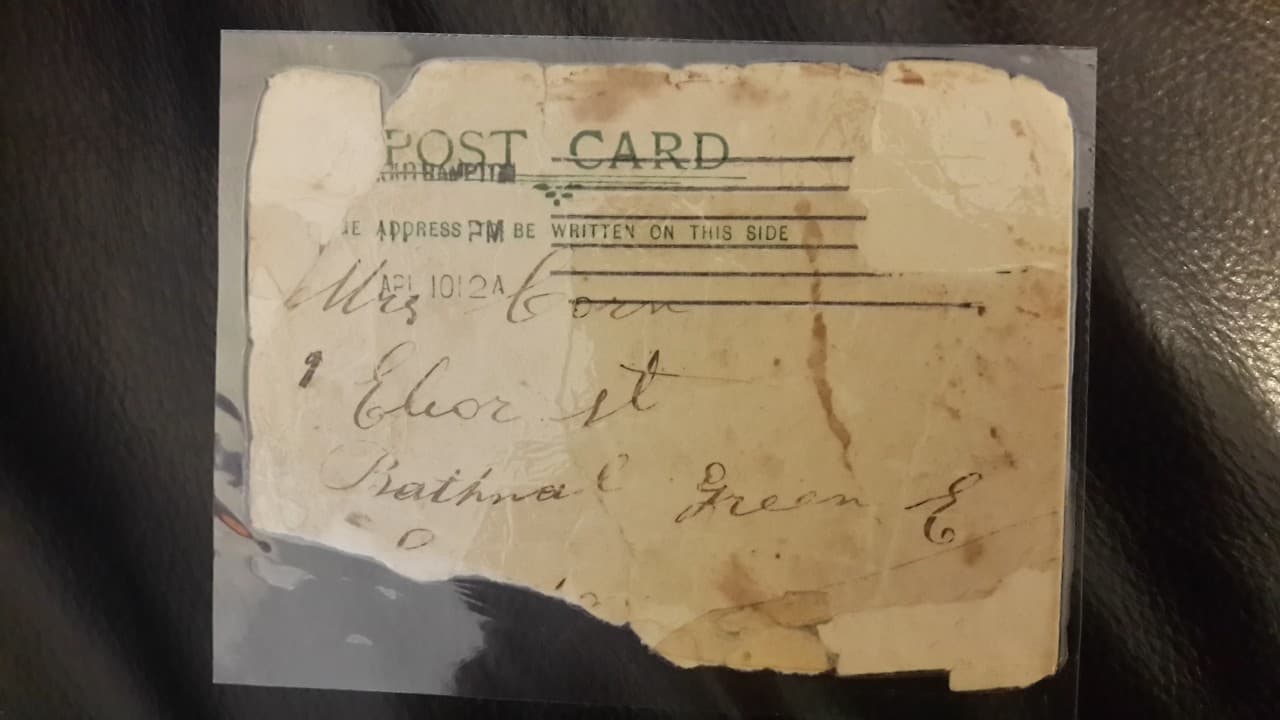 POST CARD
ADDRESS TO BE WRITTEN ON THIS SIDE
PM
APL 10 12A
Mrs Corn
9 Ebor st
Bathnal Green E